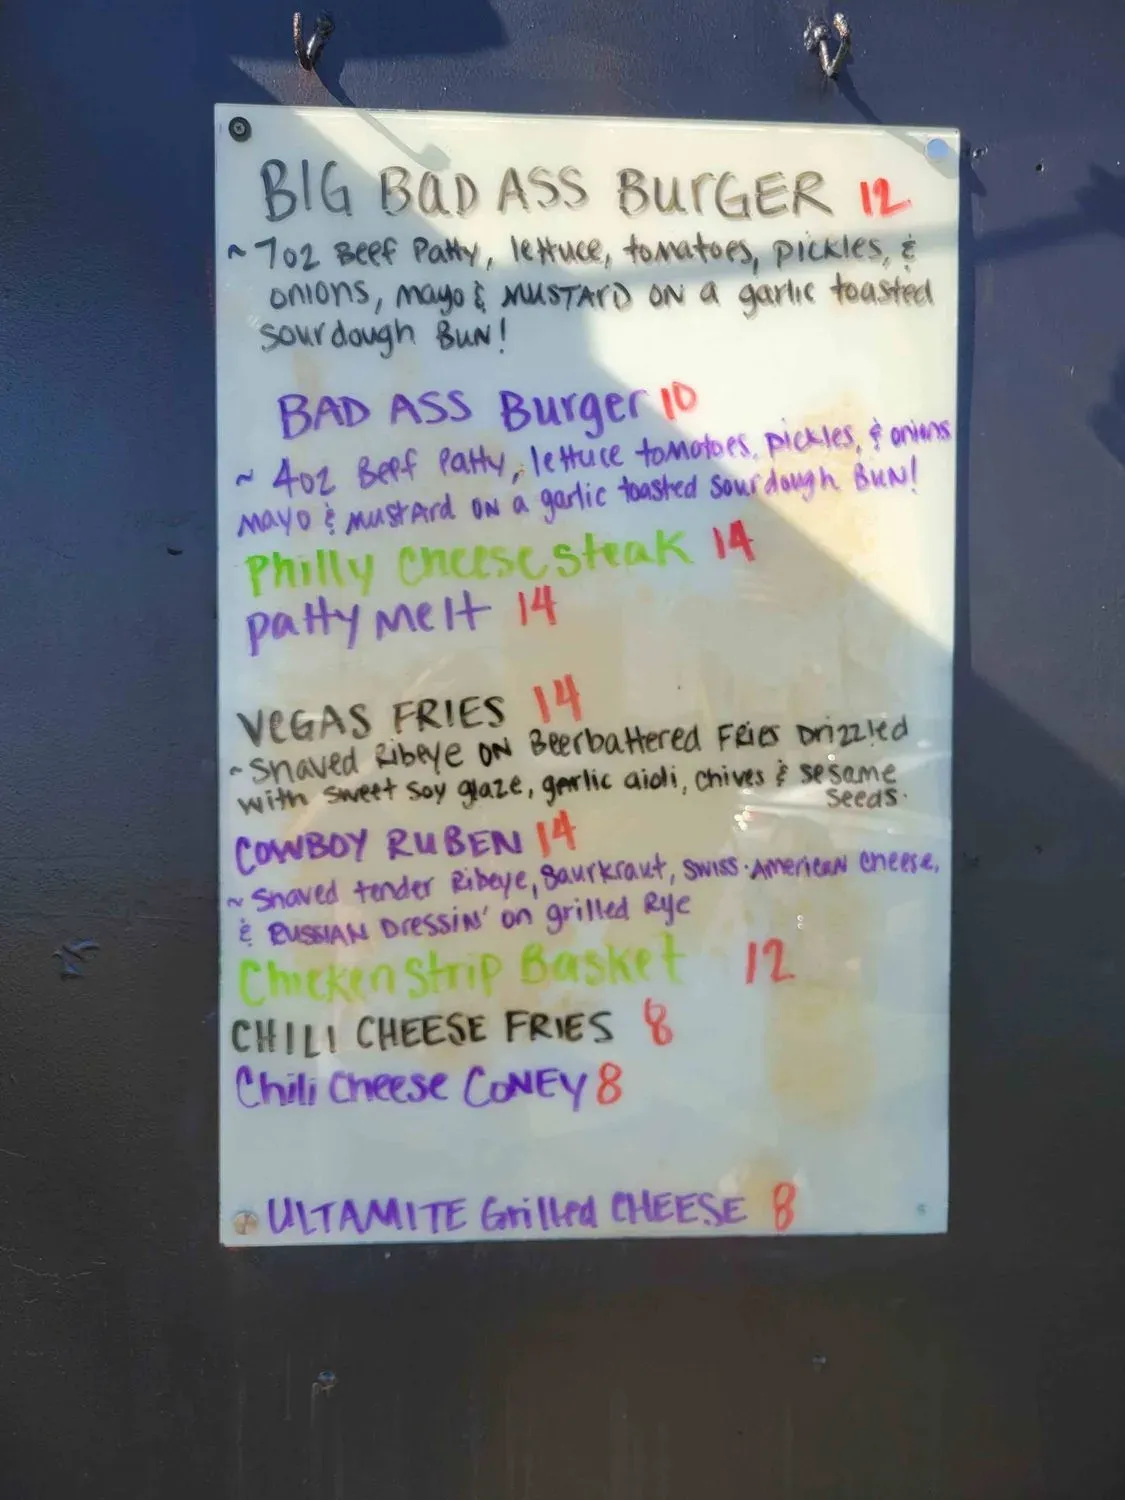 BIG BAD ASS BURGER 12
~ 7oz Beef Patty, lettuce, tomatoes, pickles, &
onions, mayo & MUSTARD ON a garlic toasted
sourdough BUN!
BAD ASS Burger 10
~ 4oz Beef Patty, lettuce tomatoes, pickles, & onions
mayo & mustard ON a garlic toasted sourdough BUN!
Philly cheese steak 14
patty melt 14
VEGAS FRIES 14
~ Shaved Ribeye ON Beerbattered FRIES Drizzled
with sweet soy glaze, garlic aioli, chives & sesame
seeds.
COWBOY RUBEN 14
~ Shaved tender Ribeye, Saurkraut, SWISS·AMERICAN cheese,
& RUSSIAN Dressin' on grilled Rye
Chicken Strip Basket 12
CHILI CHEESE FRIES 8
Chili Cheese CONEY 8
ULTAMITE Grilled CHEESE 8